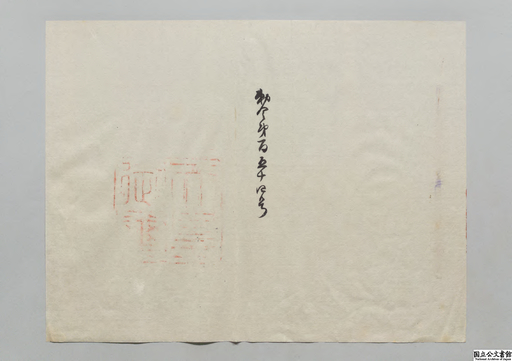 勅令第百五十四号
国立公文書館
National Archives of Japan